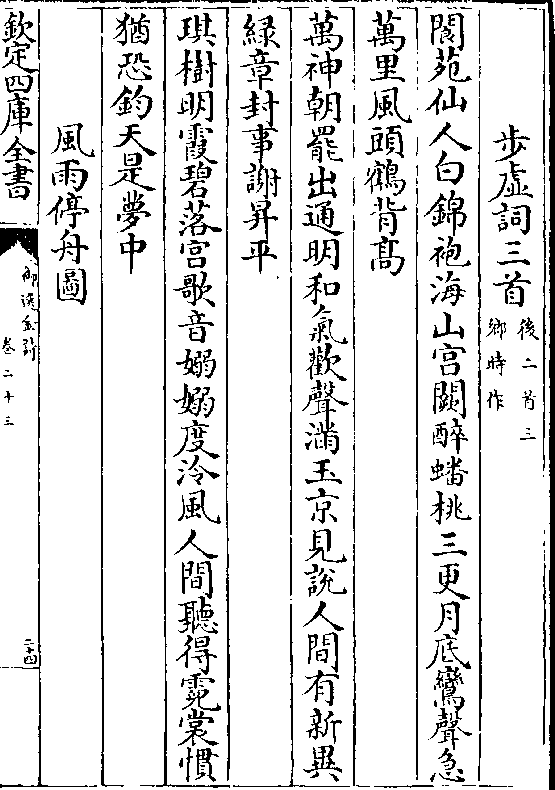 步虛詞三首後二首三
鄉時作
閬苑仙人白錦袍海山宮闕醉蟠桃三更月底鸞聲急
萬里風頭鶴背髙
萬神朝罷出通明和氣歡聲滿玉京見說人間有新異
緑章封事謝昇平
琪樹明霞碧落宮歌音嫋嫋度泠風人間聽得霓裳慣
猶恐鈞天是夢中
風雨停舟圖
欽定四庫全書
御選金詩
卷二十三
二十四